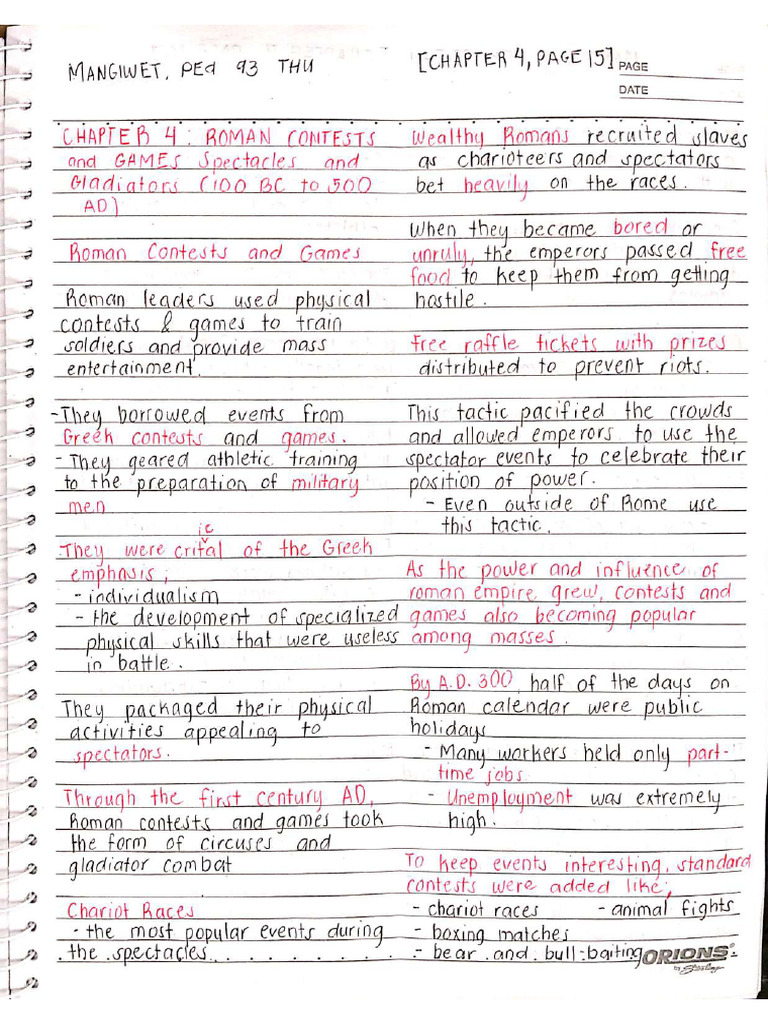 MANGIWET, PEd 93 THU
[CHAPTER 4, PAGE 15]
PAGE
DATE
CHAPTER 4 : ROMAN CONTESTS
and GAMES Spectacles and
Gladiators (100 BC to 500
AD)
Roman Contests and Games
Roman leaders used physical
contests & games to train
soldiers and provide mass
entertainment.
- They borrowed events from
Greek contests and games.
- They geared athletic training
to the preparation of military
men
ic
They were crital of the Greek
emphasis;
- individualism
- the development of specialized
physical skills that were useless
in battle.
They packaged their physical
activities appealing to
spectators.
Through the first century AD,
Roman contests and games took
the form of circuses and
gladiator combat
Chariot Races
- the most popular events during
the spectacles
Wealthy Romans recruited slaves
as charioteers and spectators
bet heavily on the races.
When they became bored or
unruly, the emperors passed free
food to keep them from getting
hostile.
Free raffle tickets with prizes
distributed to prevent riots.
This tactic pacified the crowds
and allowed emperors to use the
spectator events to celebrate their
position of power.
- Even outside of Rome use
this tactic.
As the power and influence of
roman empire grew, contests and
games also becoming popular
among masses.
By A.D. 300, half of the days on
Roman calendar were public
holidays
- Many workers held only part-
time jobs
- Unemployment was extremely
high.
To keep events interesting, standard
contests were added like;
- chariot races - animal fights
- boxing matches
- bear and bull-baiting
ORIONS
by Sterling